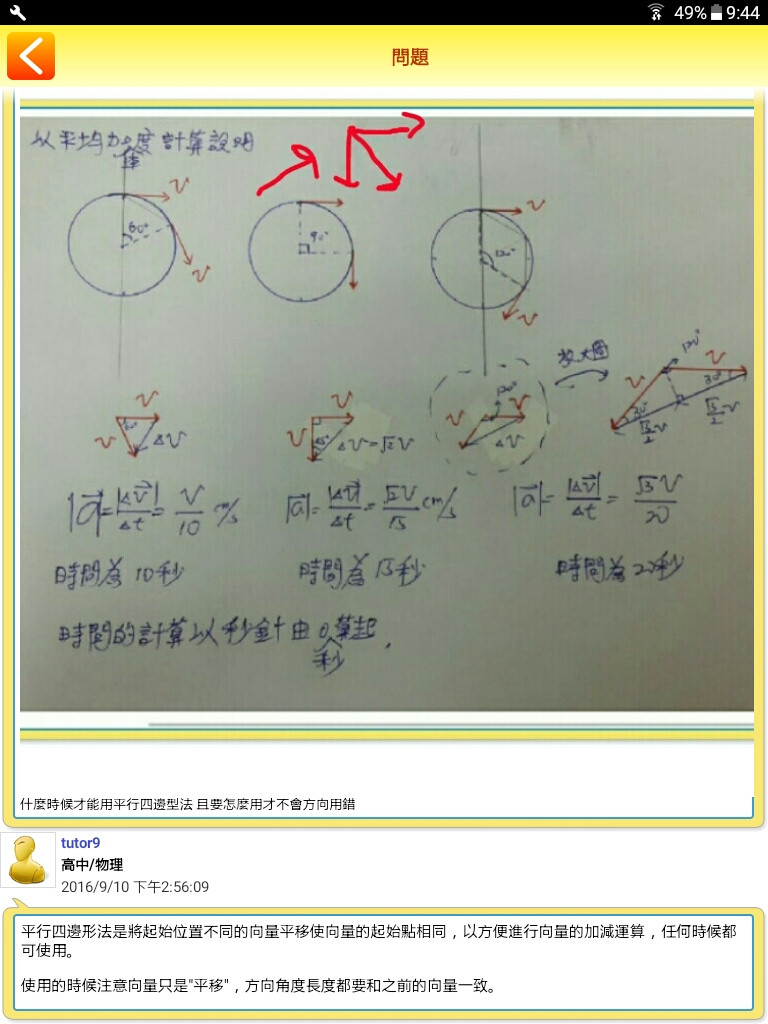 49% 9:44
問題
以平均加速度計算說明
v
v
60°
90°
v
v
120°
放大圖
v
v
Δv
v
v
Δv=√2v
120°
v
v
Δv
120°
v
v
30°
30°
√3/2 v
√3/2 v
|a⃗|=|Δv⃗|/Δt=v/10 cm/s
|a⃗|=|Δv⃗|/Δt=√2v/15 cm/s
|a⃗|=|Δv⃗|/Δt=√3v/20
時間為10秒
時間為15秒
時間為20秒
時間的計算以秒針由0秒算起.
什麼時候才能用平行四邊型法 且要怎麼用才不會方向用錯
tutor9
高中/物理
2016/9/10 下午2:56:09
平行四邊形法是將起始位置不同的向量平移使向量的起始點相同，以方便進行向量的加減運算，任何時候都
可使用。
使用的時候注意向量只是"平移"，方向角度長度都要和之前的向量一致。